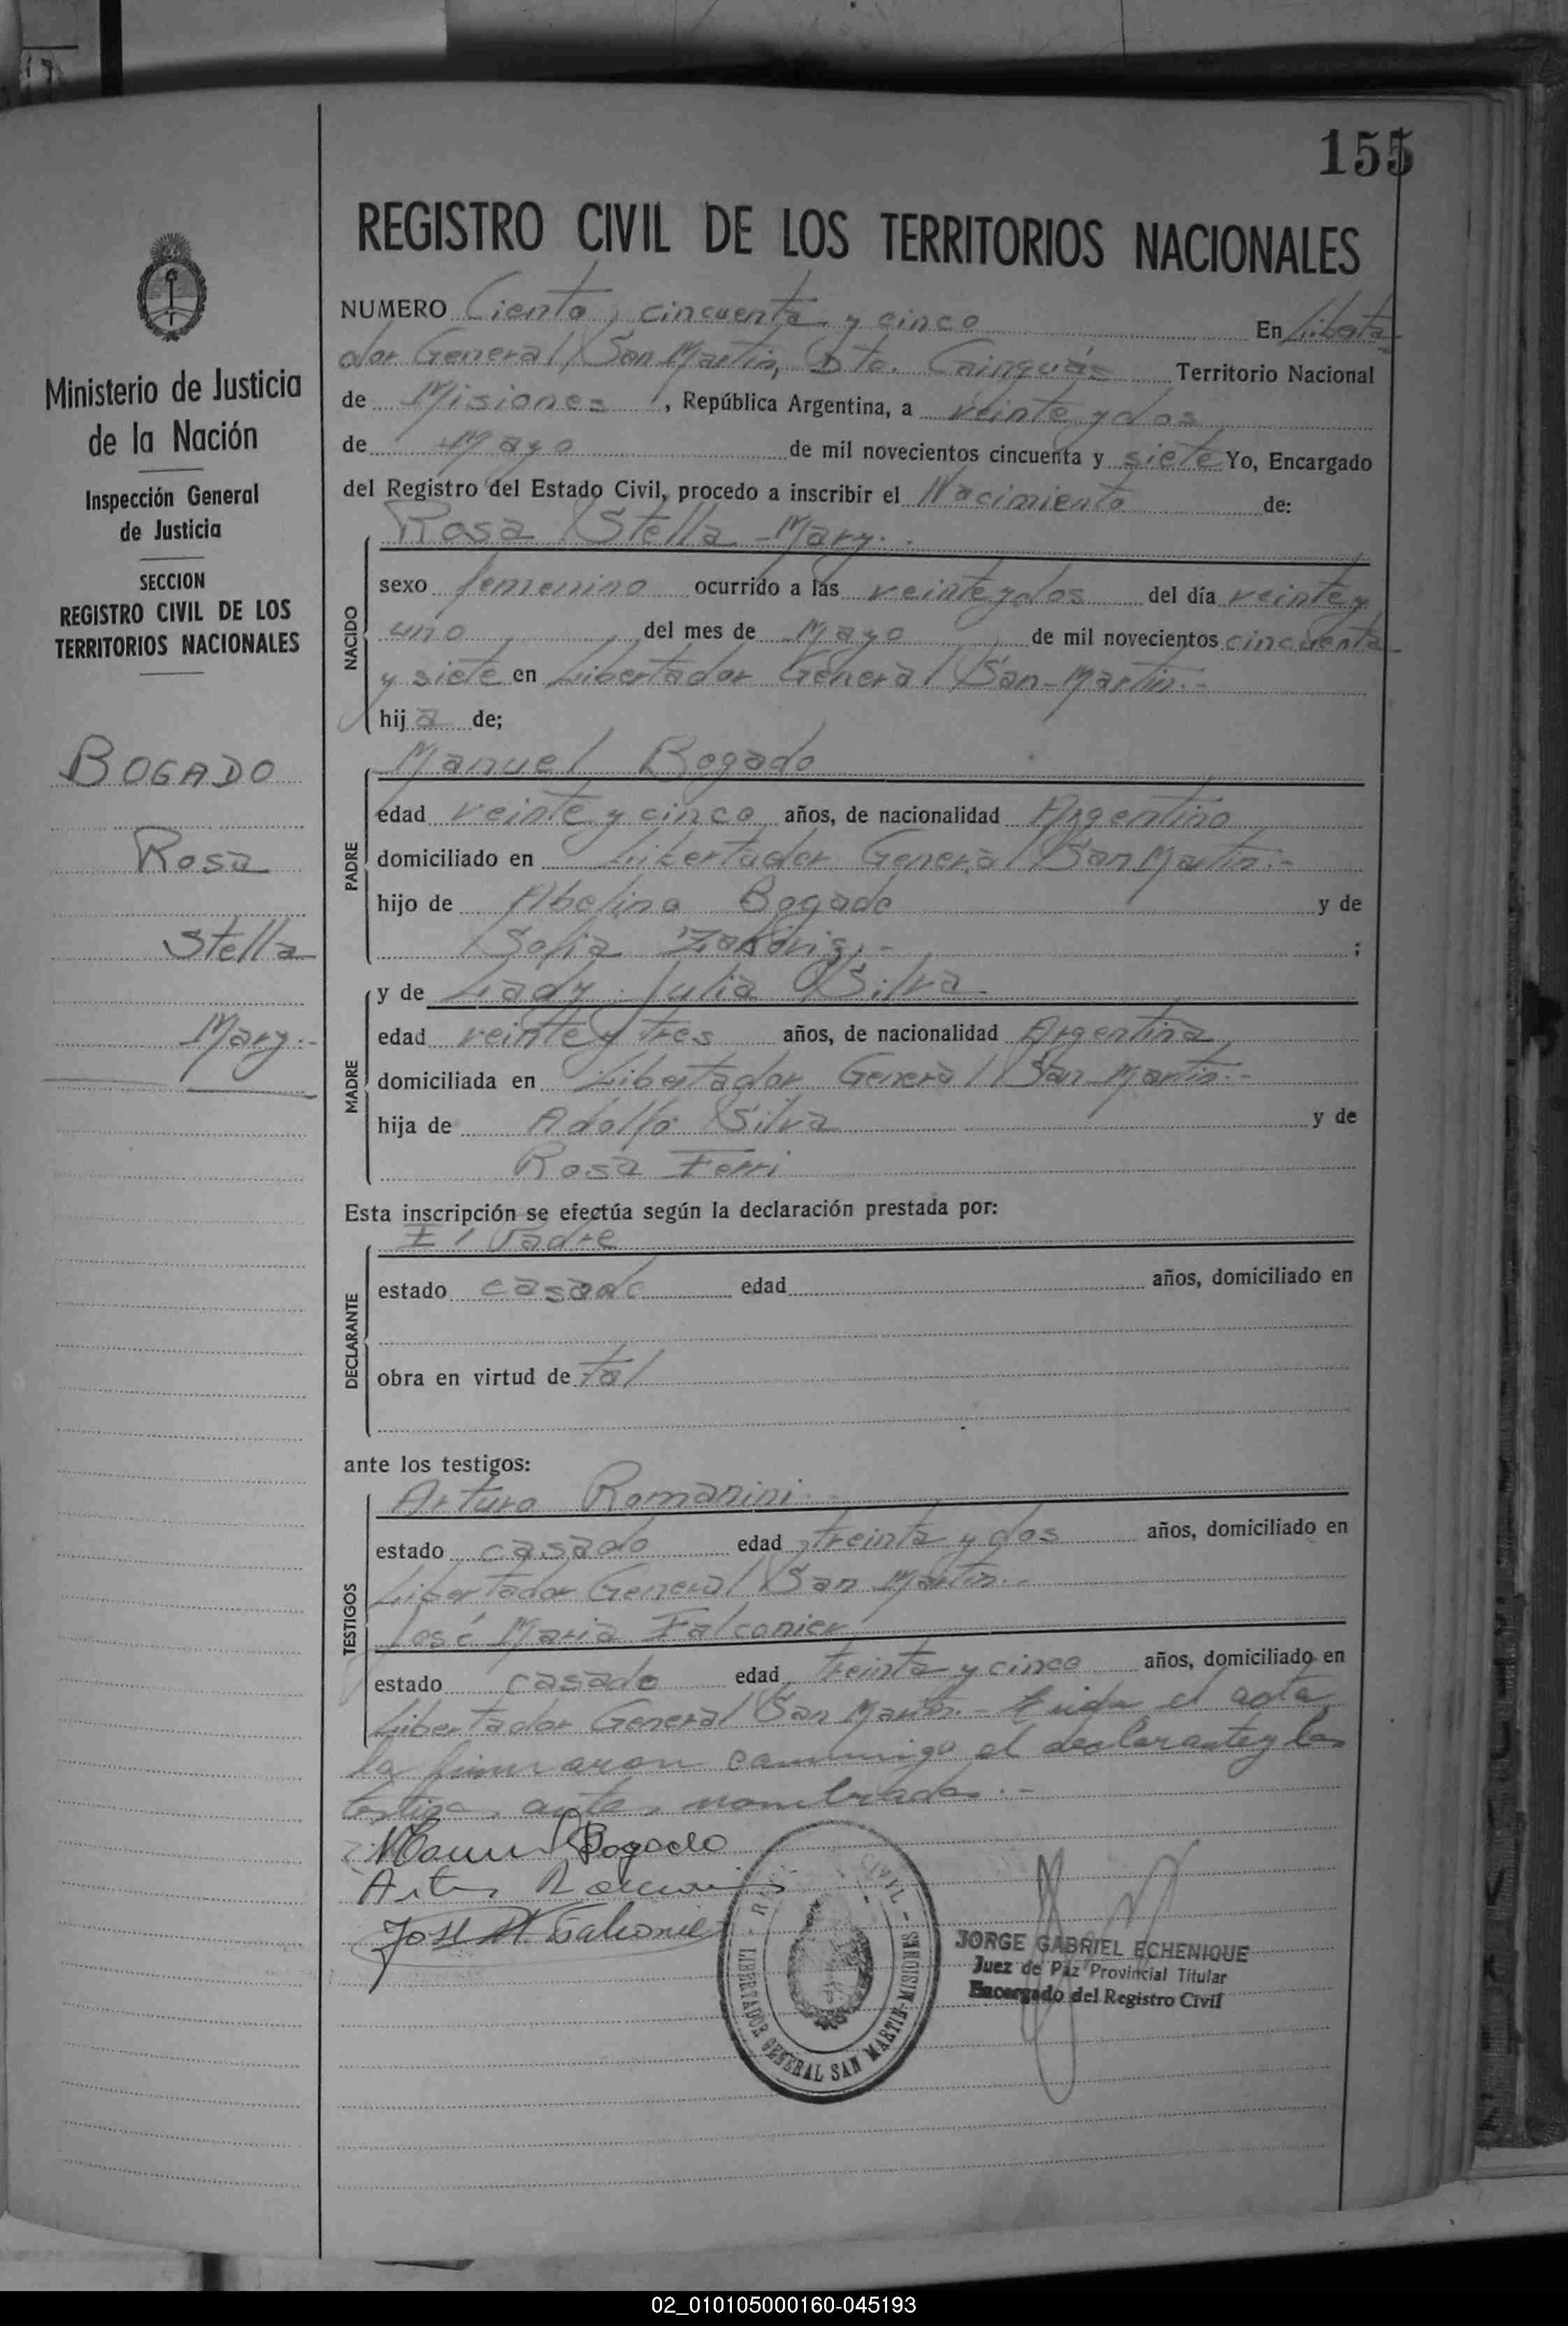 155
REGISTRO CIVIL DE LOS TERRITORIOS NACIONALES
Ministerio de Justicia
de la Nación
Inspección General
de Justicia
SECCION
REGISTRO CIVIL DE LOS
TERRITORIOS NACIONALES
BOGADO
Rosa
Stella
Mary.-
NUMERO Ciento cincuenta y cinco En Liberta
dor General San Martin, Dto. Cainguás Territorio Nacional
de Misiones, República Argentina, a veinte y dos
de Mayo de mil novecientos cincuenta y siete Yo, Encargado
del Registro del Estado Civil, procedo a inscribir el Nacimiento de:
Rosa Stella Mary.-
NACIDO
sexo femenino ocurrido a las veinte y dos del día veinte y
uno del mes de Mayo de mil novecientos cincuenta
y siete en Libertador General San Martin.-
hija de;
Manuel Bogado
PADRE
edad veinte y cinco años, de nacionalidad Argentino
domiciliado en Libertador General San Martin.-
hijo de Abelino Bogado y de
Sofia ;
MADRE
y de Lady Julia Silva
edad veinte y tres años, de nacionalidad Argentina
domiciliada en Libertador General San Martin.-
hija de Adolfo Silva y de
Rosa Ferri
Esta inscripción se efectúa según la declaración prestada por:
El Padre
DECLARANTE
estado casado edad años, domiciliado en
obra en virtud de tal
ante los testigos:
Arturo Romanini
TESTIGOS
estado casado edad treinta y dos años, domiciliado en
Libertador General San Martin.-
José Maria Falconier
estado casado edad treinta y cinco años, domiciliado en
Libertador General San Martin.- el acta
la firmaron conmigo el declarante y los
testigos antes nombrados.-
Manuel Bogado
Arturo Romanini
José M. Falconier
LIBERTADOR GENERAL SAN MARTIN-MISIONES
JORGE GABRIEL ECHENIQUE
Juez de Paz Provincial Titular
Encargado del Registro Civil
02_010105000160-045193